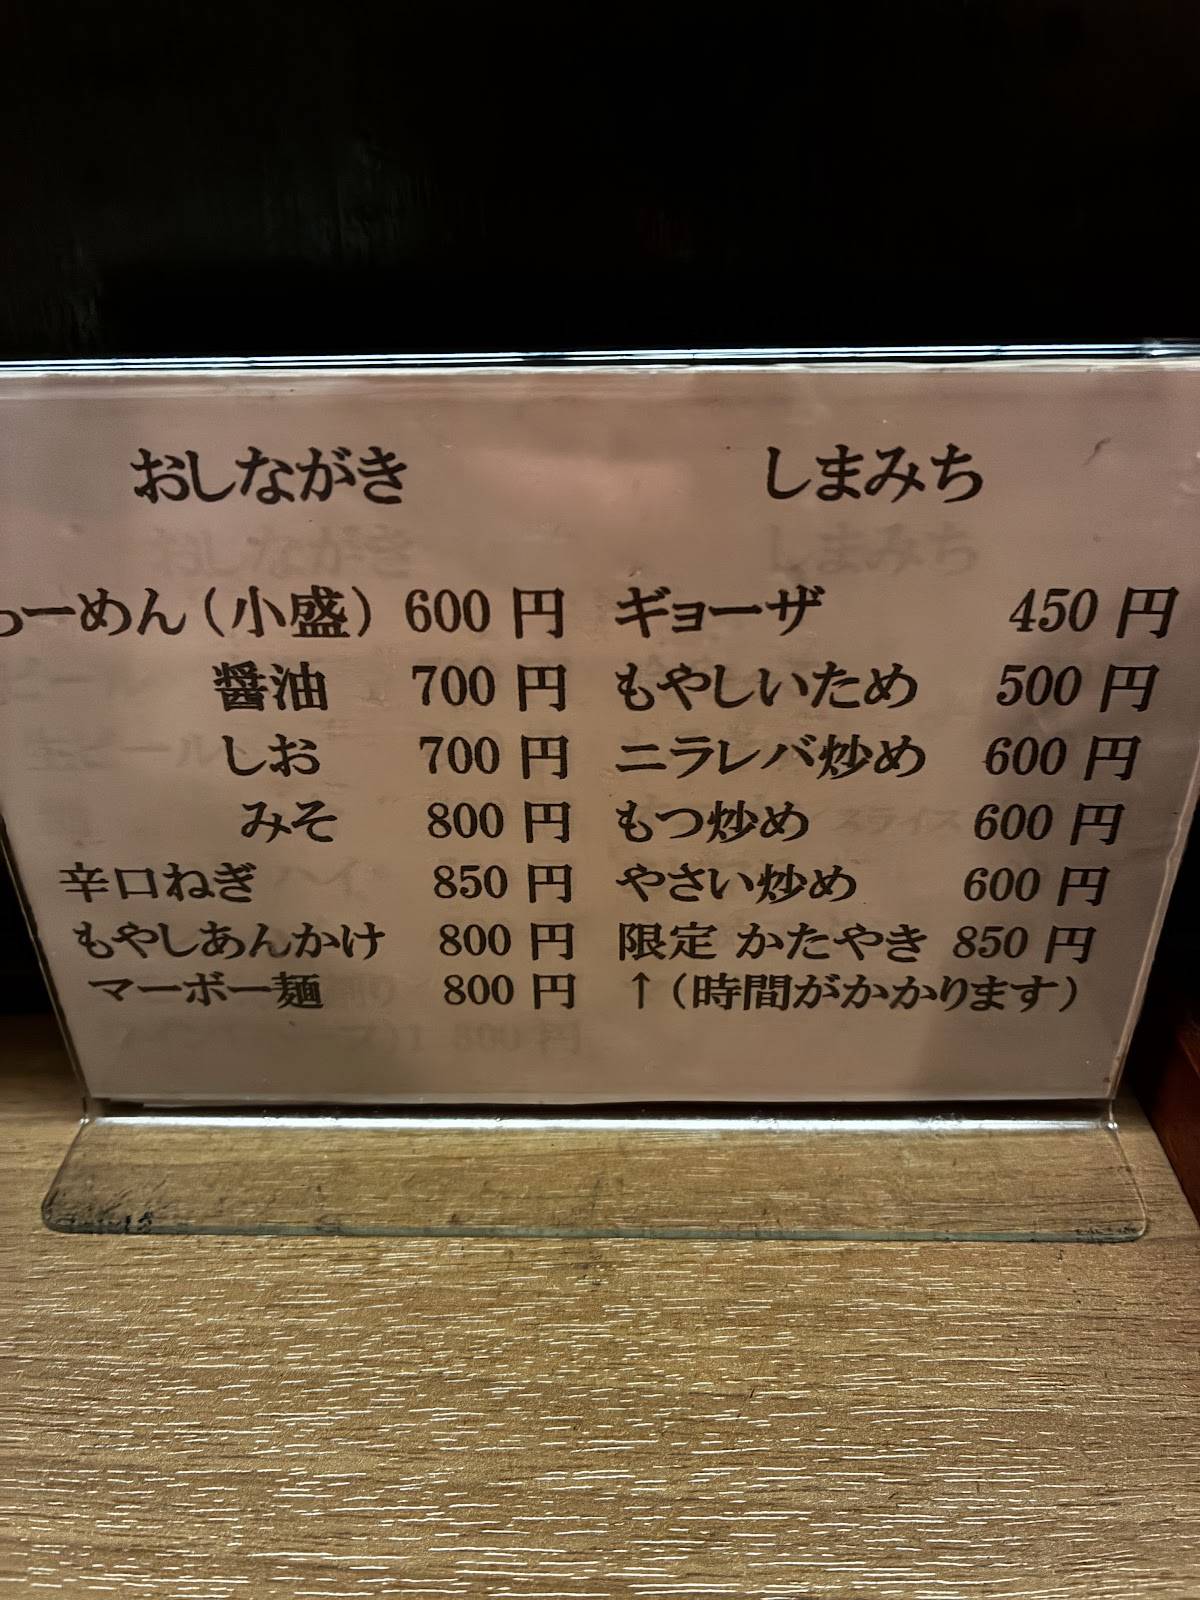 おしながき しまみち
らーめん（小盛） 600 円 ギョーザ 450 円
醤油 700 円 もやしいため 500 円
しお 700 円 ニラレバ炒め 600 円
みそ 800 円 もつ炒め 600 円
辛口ねぎ 850 円 やさい炒め 600 円
もやしあんかけ 800 円 限定 かたやき 850 円
マーボー麺 800 円 ↑（時間がかかります）